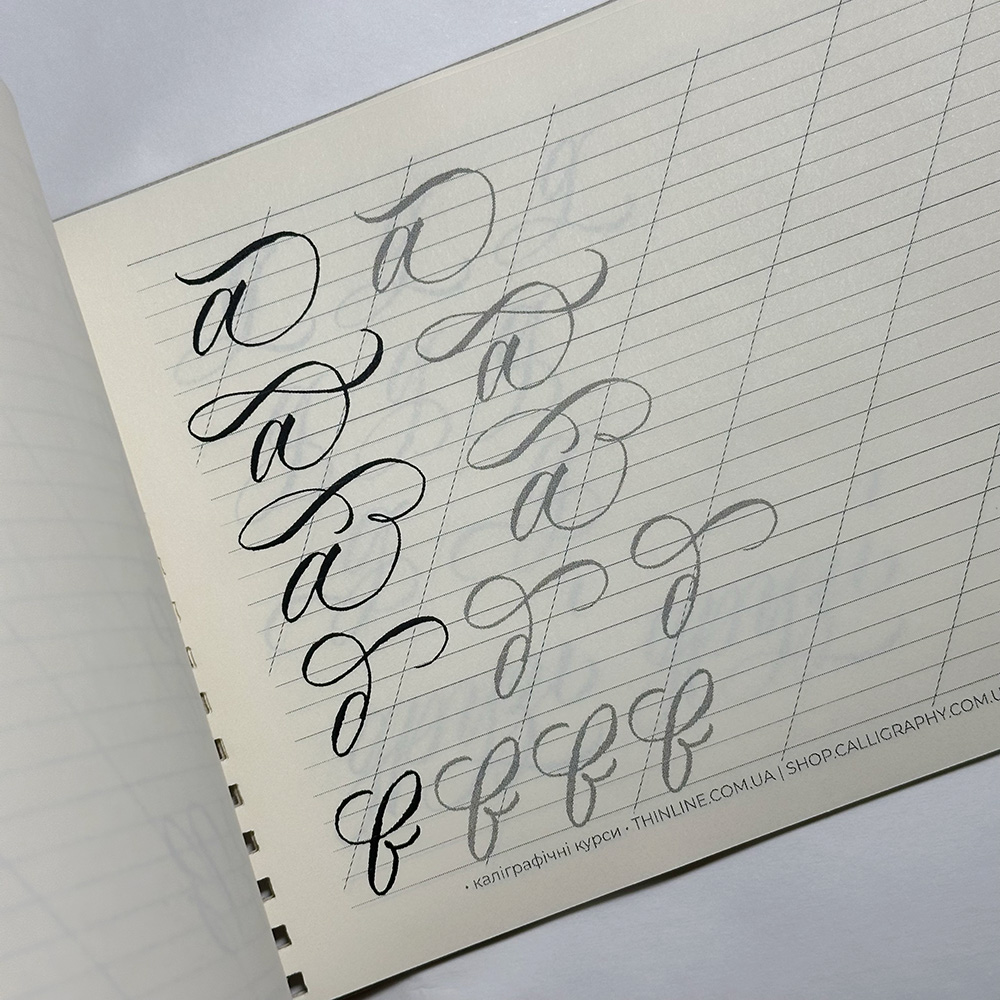 а а
а а
а а
б б б
в в в в
· каліграфічні курси · THINLINE.COM.UA | SHOP.CALLIGRAPHY.COM.U